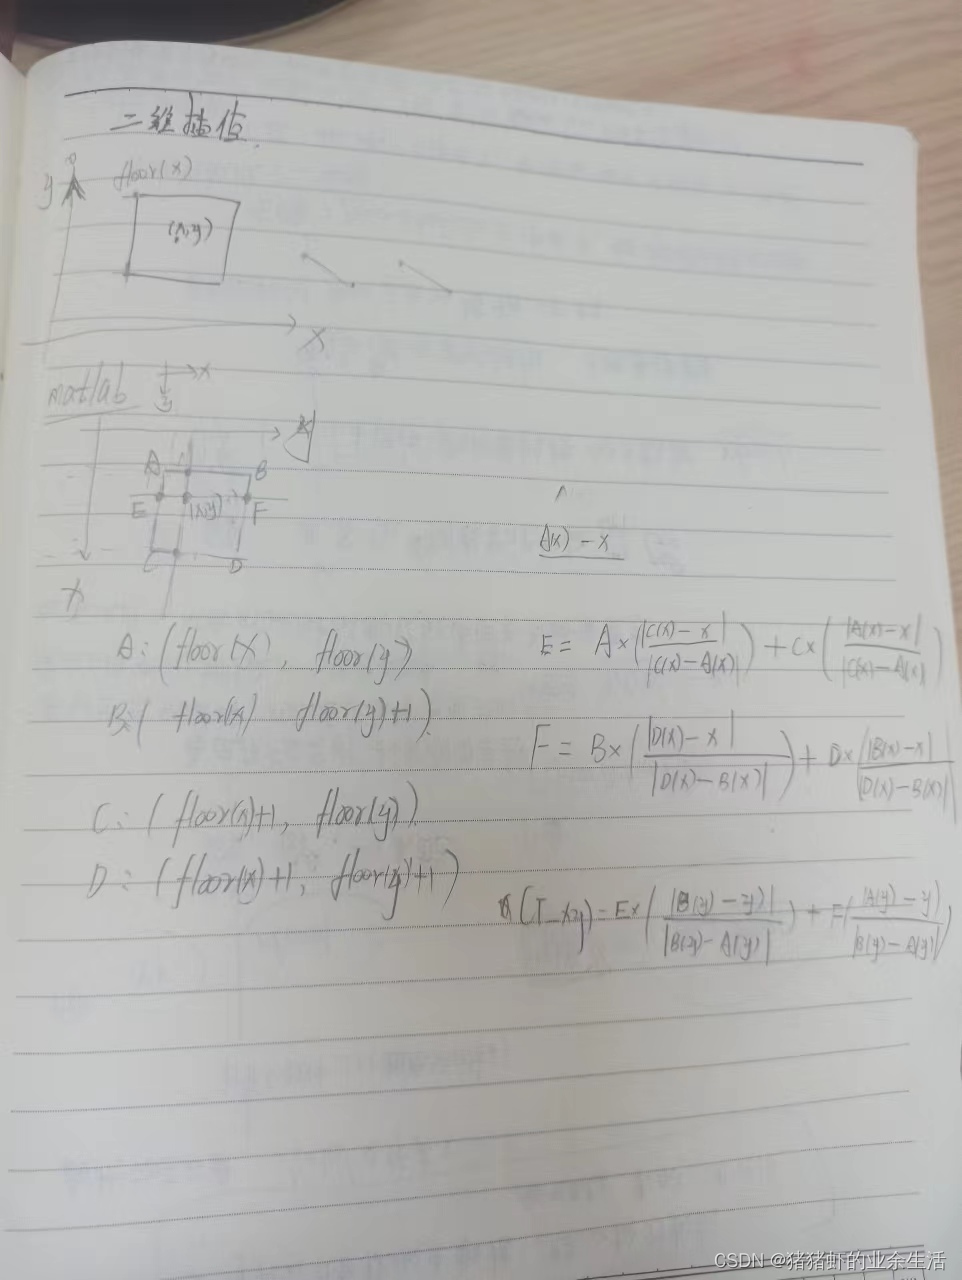 二维插值
y
floor(x)
(x,y)
x
matlab
x
y
y
A
B
E
(x,y)
F
C
D
x
A(x) - x
A: (floor(x), floor(y))
B: ( floor(x) floor(y)+1).
C: ( floor(x)+1, floor(y))
D: (floor(x)+1, floor(y)+1)
E = A × (|C(x) - x| / |C(x) - A(x)|) + C × (|A(x) - x| / |C(x) - A(x)|)
F = B × (|D(x) - x| / |D(x) - B(x)|) + D × (|B(x) - x| / |D(x) - B(x)|)
= E × (|B(y) - y)| / |B(y) - A(y)|) + F(|A(y) - y) / |B(y) - A(y)|)
CSDN @猪猪虾的业余生活